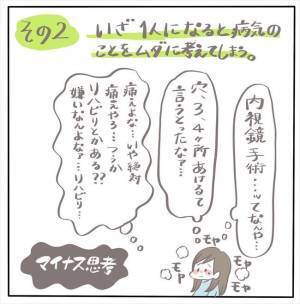 その2
いざ1人になると病気の
ことをムダに考えてしまう。
内視鏡手術…ってなんや…
穴、3、4ヶ所あけるて
言うとったなァ…
痛えよな…いや絶対
痛えやろ…つうか
リハビリとかある??
嫌いなんよなァ…リハビリ…
モヤ
モヤ
モヤ
モヤ
マイナス思考